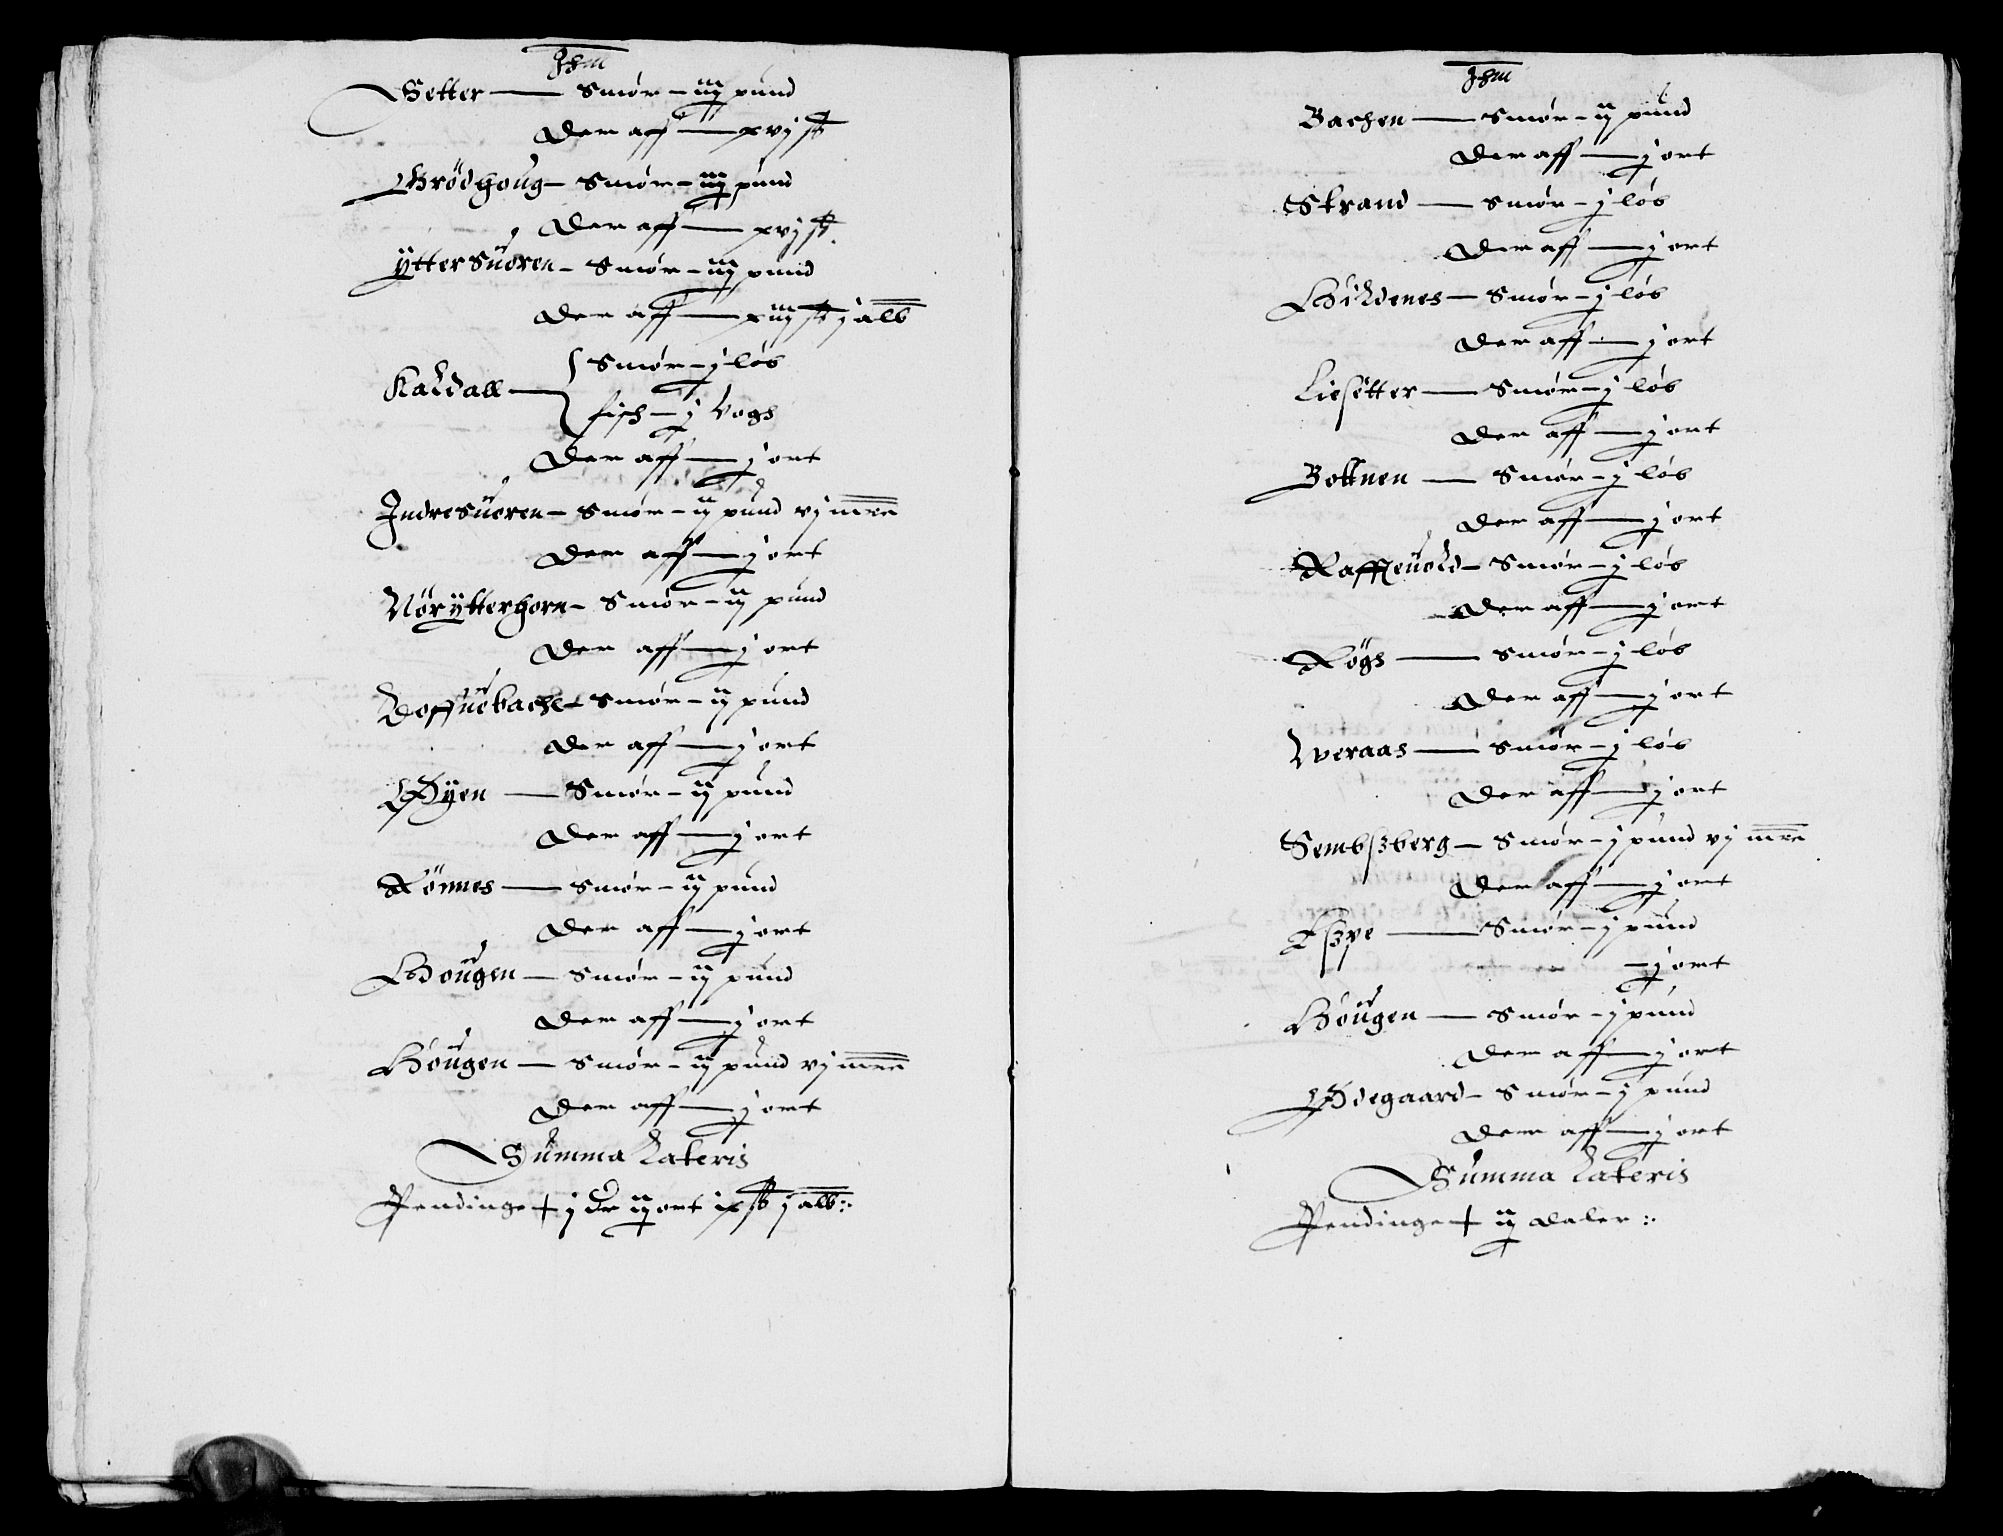 Jhm
Setter — Smør – iiij pund
Der aff — xvj ſk
Brödhoug – Smør – iiij pund
Der aff — xvj ſk.
ÿtterSuoren – Smør – iiij pund
Der aff — xiiij ſk j alb
Kaldall — Smør – j løb
fisch – j Vogh
Der aff — j ort
IndreSuoren – Smør – ij pund vj mrc
Der aff — j ort
Nörÿtterhorn – Smør – ij pund
Der aff — j ort
Doffuebache – Smør – ij pund
Der aff — j ort
Øÿen — Smør – ij pund
Der aff — j ort
Rönnes — Smør – ij pund
Der aff — j ort
Hougen — Smør – ij pund
Der aff — j ort
Hougen — Smør – ij pund vj mrc
Der aff — j ort
Summa Lateris
Pendinge + j dr iij ort ix ſk j alb:.
Jhm
Bachen — Smør – ij pund
Der aff — j ort
Strand — Smør – j løb
Der aff — j ort
Hildenes — Smør – j løb
Der aff — j ort
Liesetter — Smør – j løb
Der aff — j ort
Bottnen — Smør – j løb
Der aff — j ort
Raffneuold – Smør – j løb
Der aff — j ort
Rögs — Smør – j løb
Der aff — j ort
Weraas — Smør – j løb
Der aff — j ort
Sembszberg – Smør – j pund vj mrc
Der aff — j ort
Eszpe — Smør – j pund
— j ort
Hougen — Smør – j pund
Der aff — j ort
Ødegaard – Smør – j pund
Der aff — j ort
Summa Lateris
Pendinge + iij daler :.